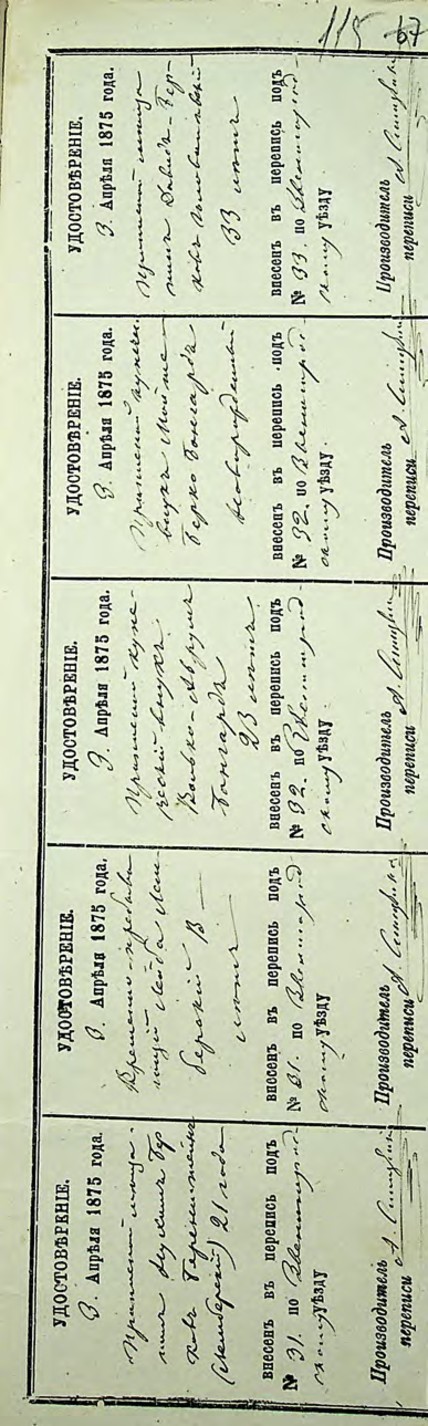 115 67
УДОСТОВѢРЕНІЕ.
3. Апрѣля 1875 года.
(Лемберскій) 21 года
внесенъ въ перепись подъ
№ 31. по Звениигород-
скому уѣзду
Производитель
переписи
УДОСТОВѢРЕНІЕ.
3. Апрѣля 1875 года.
Временно-пребыва
ющій Лейба Лем-
берскій 13 —
лѣтъ
внесенъ въ перепись подъ
№ 31. по Звенигород-
скому уѣзду
Производитель
переписи
УДОСТОВѢРЕНІЕ.
3. Апрѣля 1875 года.
Приписной купе-
ческій внукъ
Волько-Аврумъ
Бонгардъ
23 лѣтъ
внесенъ въ перепись подъ
№ 32. по Звенигород-
скому уѣзду.
Производитель
переписи
УДОСТОВѢРЕНІЕ.
3. Апрѣля 1875 года.
Приписной купечес.
внукъ
Берко Бонгардъ
внесенъ въ перепись подъ
№ 32. по Звенигород-
скому уѣзду.
Производитель
переписи
УДОСТОВѢРЕНІЕ.
3. Апрѣля 1875 года.
Приписной мѣща
нинъ Давидъ-Бер-
ковъ
33 лѣтъ
внесенъ въ перепись подъ
№ 33. по Звенигород-
скому уѣзду.
Производитель
переписи